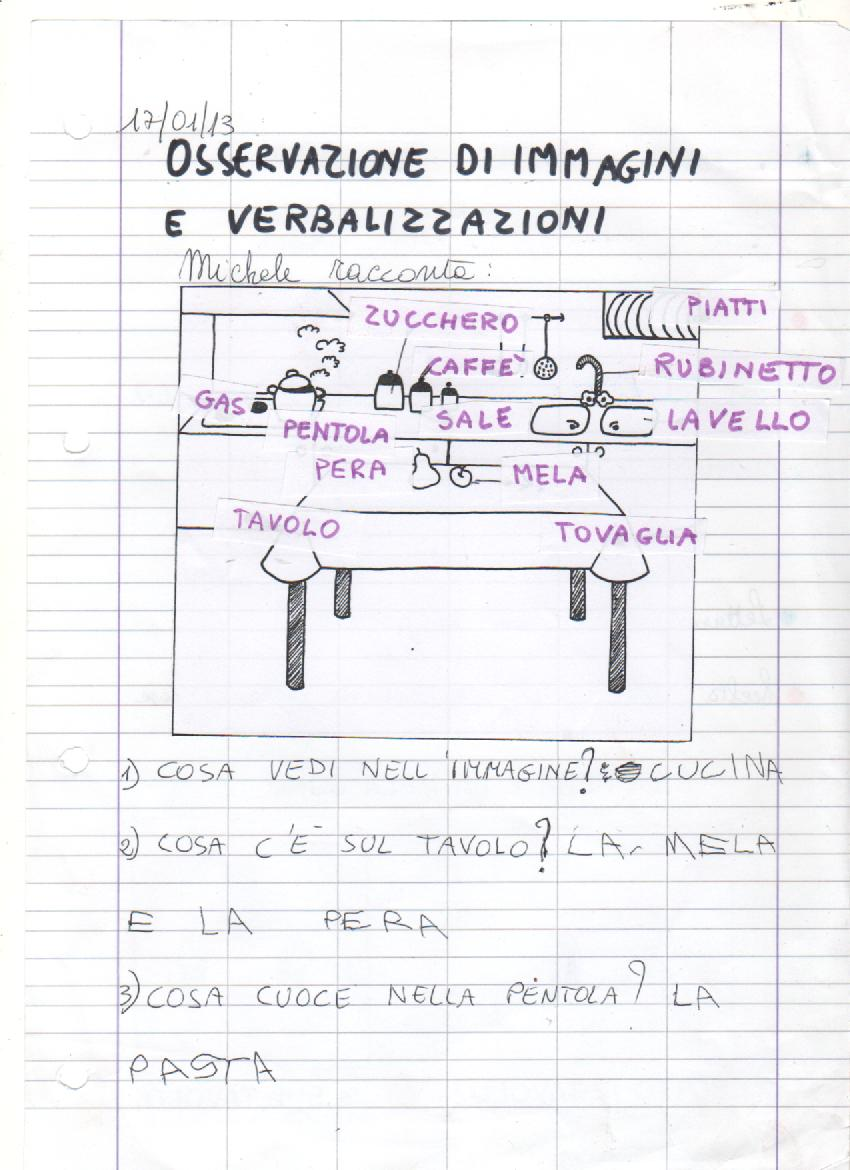 17/01/13
OSSERVAZIONE DI IMMAGINI
E VERBALIZZAZIONI
Michele racconta:
ZUCCHERO
PIATTI
CAFFÈ
RUBINETTO
GAS
PENTOLA
SALE
LAVELLO
PERA
MELA
TAVOLO
TOVAGLIA
1) COSA VEDI NELL'IMMAGINE? CUCINA
2) COSA C'È SUL TAVOLO? LA MELA
E LA PERA
3) COSA CUOCE NELLA PENTOLA? LA
PASTA